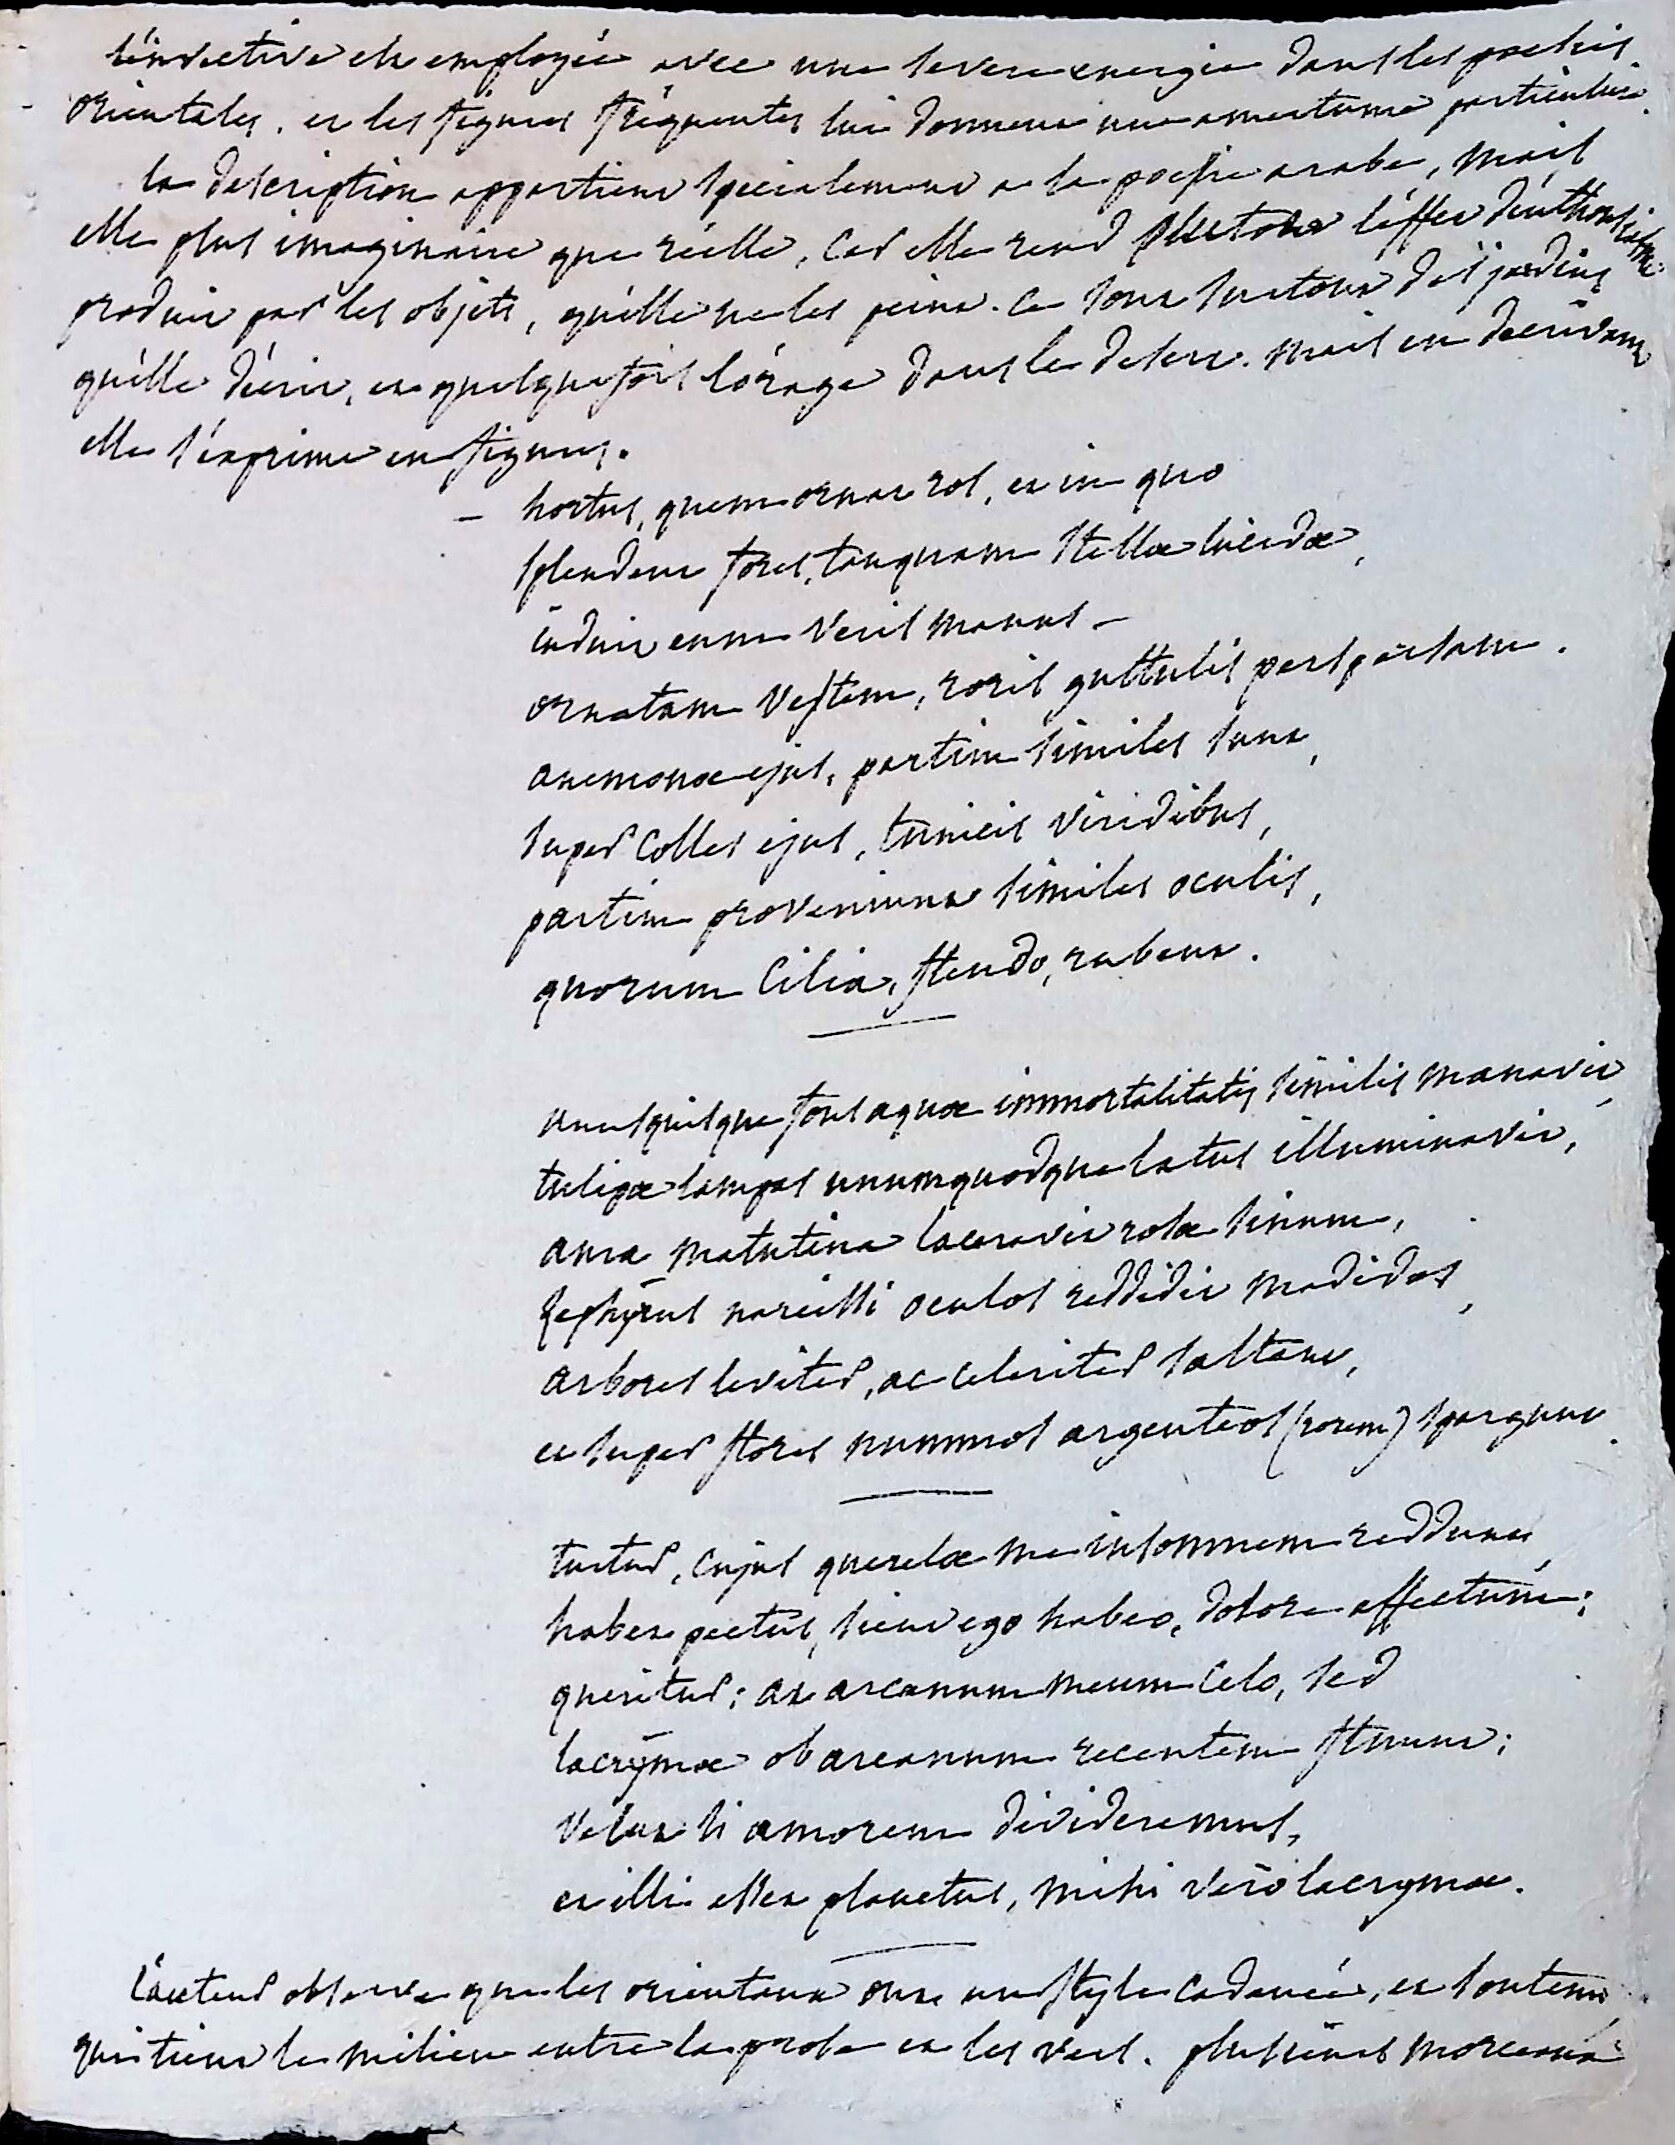 l'invective est employée avec une severe energie dans les poesies
orientales, et les figures fréquentes lui donnent une amertume particuliere.
la description appartient specialement a la poësie arabe, mais
elle plus imaginaire que réelle, car elle rend plustost l'éffet d'enthousiasme
produit par les objets, qu'elle ne les peint. ce sont surtout des jardins
qu'élle décrit, et quelques fois l'orage dans le desert. mais en decrivant
elle s'éxprime en figures.
– hortus, quem ornat ros, et in quo
splendent flores, tanquam stellæ lucidæ,
induit eum veris manus –
ornatam vestem, roris guttulis perspersam.
anemonæ ejus, partim similes sunt,
super colles ejus, tunicis viridibus,
partim proveniunt similes oculis,
quorum cilia, flendo, rubent.
unusquisque fons aquæ immortalitatis similis manavit,
tulipæ lampas unumquodque latus illuminavit,
aura matutina laceravit rosæ sinum,
Zephyrus narcissi oculos reddidit madidos,
arbores leviter, ac celeriter saltant,
et super flores nummos argenteos (rorem) spargunt.
turtur, cujus querelæ me insomnem reddunt,
habet pectus, sicut ego habeo, dolore affectum;
queritur; at arcanum meum celo, sed
lacrymæ ob arcanum recentem fluunt;
velut si amorem divideremus,
et illi esset planctus, mihi vero lacrymæ.
L'auteur observe que les orientaux ont un style cadencé, et soutenu
qui tient le milieu entre la prose et les vers. plusieurs morceaux